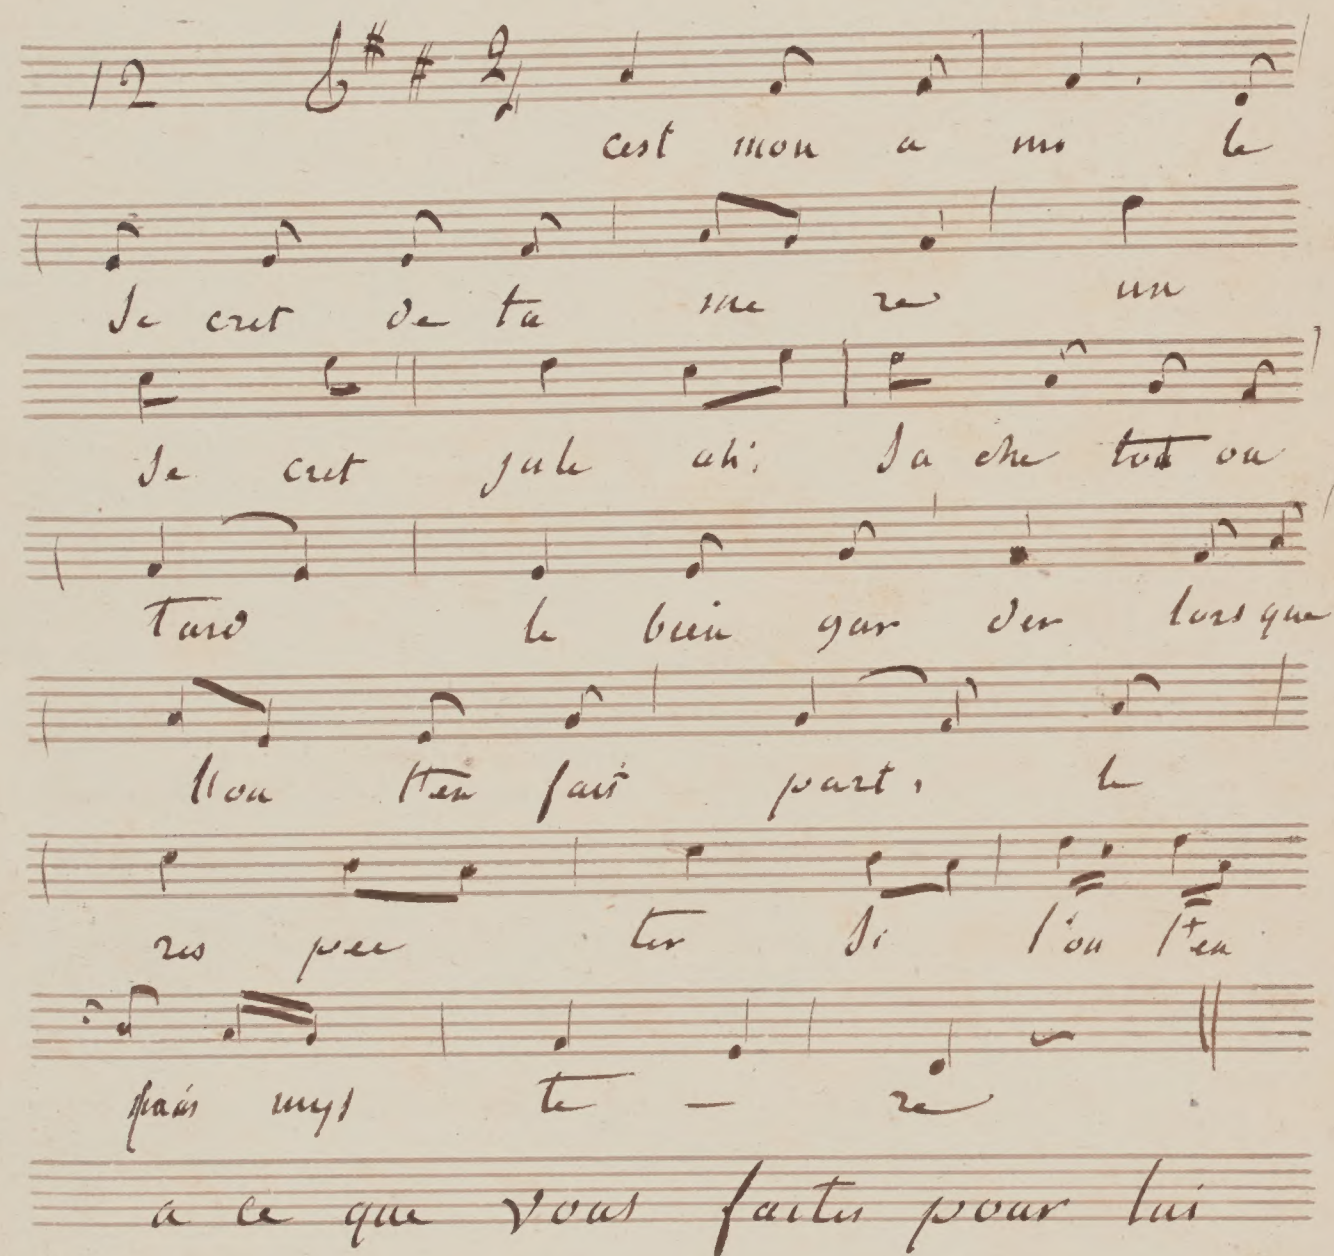 12 2/4
cest mon a mi le
se cret de ta me re un
se cret jule ah; sa che tot ou
tard le bien gar der lors que
l'on t'en fait part, le
res pec ter si l'on t'en
fais mys te — re
a ce que vous faites pour lui